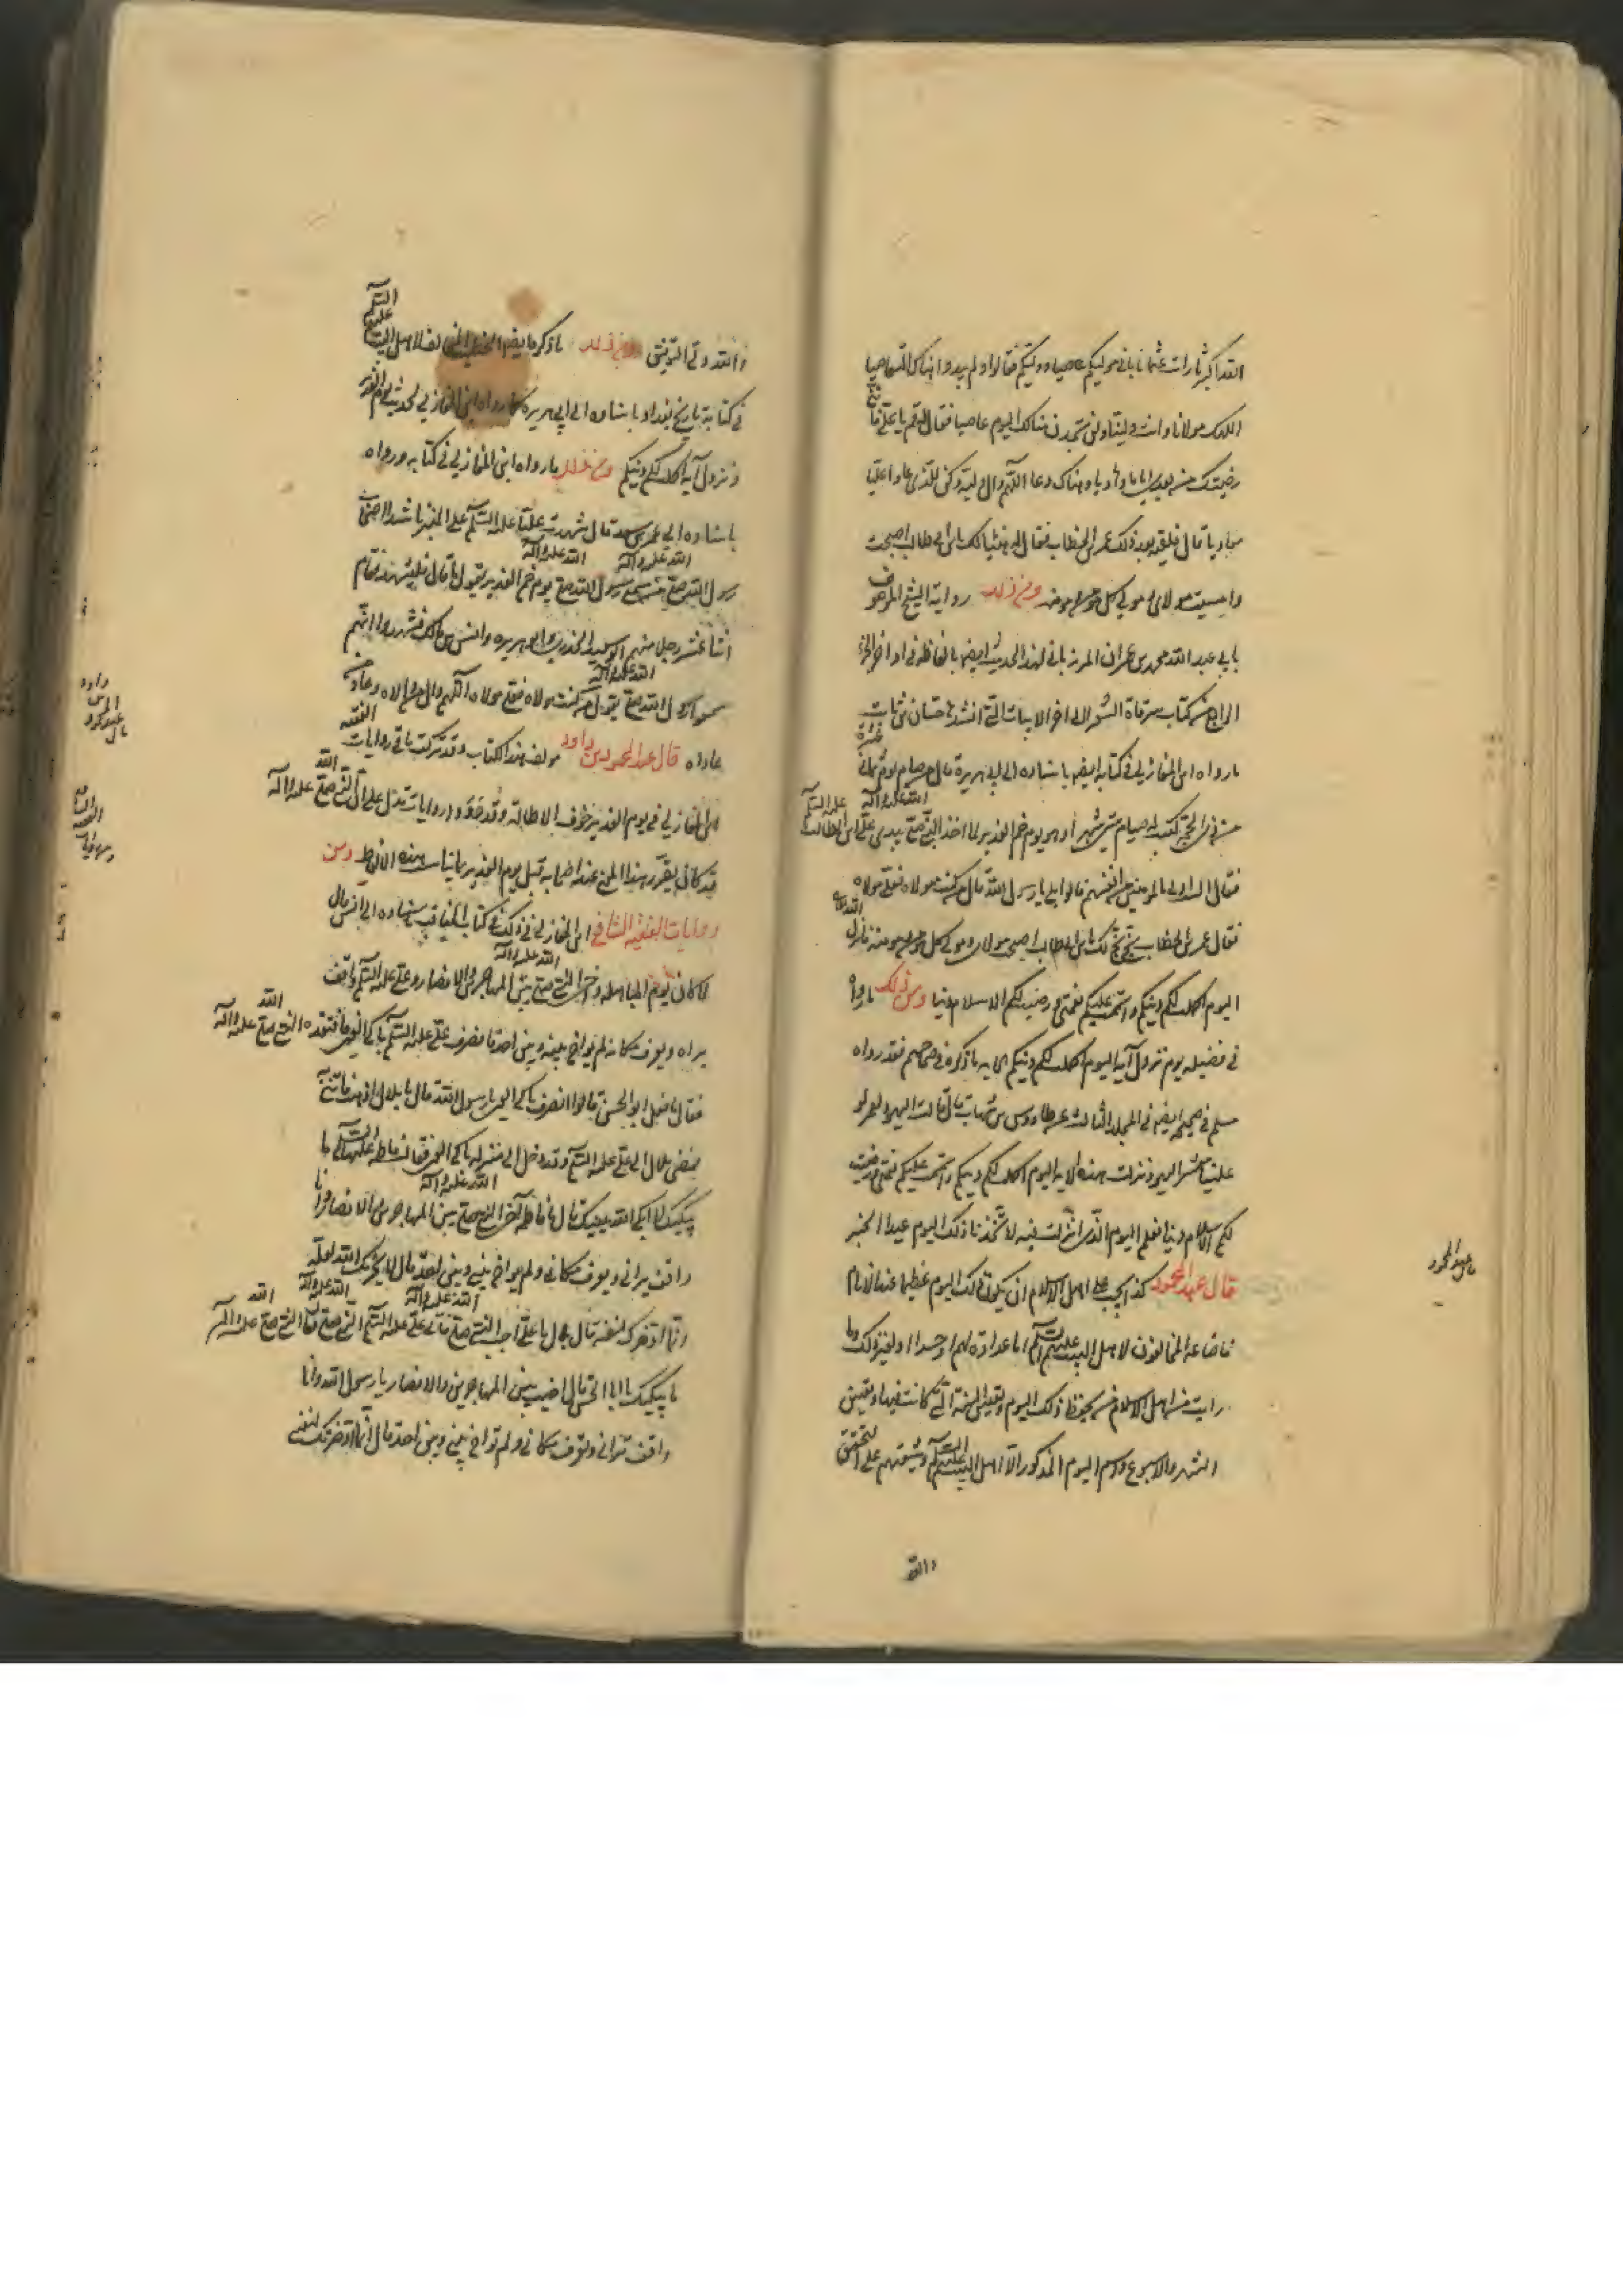 رضيتك من بعدى اماما وهاديا هناك دعا اللهم وال وليه وكن للذى عادا عليا
معاديا قال فلقيه بعد ذلك عمر بن الخطاب فقال له هنيئا لك يا بن ابى طالب اصبحت
وامسيت مولاى ومولى كل مؤمن ومؤمنة ومن ذلك رواية الشيخ المعروف
بابى عبد الله محمد بن عمران المرزبانى لهذا الحديث ايضا بالفاظه فى اواخر الجزء
الرابع من كتاب مرقاة الشعر الى اخر الابيات التى انشدها حسان بن ثابت
ما رواه ابن المغازلى فى كتابه ايضا باسناده الى ابى هريرة قال من صام يوم ثمانية عشرة
من ذى الحجة كتب له صيام ستين شهرا وهو يوم غدير خم لما اخذ النبى صلى الله عليه وآله بيدى على بن ابى طالب عليه السلام
فقال الست اولى بالمؤمنين من انفسهم قالوا بلى يا رسول الله قال من كنت مولاه فعلى مولاه
فقال عمر بن الخطاب بخ بخ لك يا بن ابى طالب اصبحت مولاى ومولى كل مؤمن ومؤمنة فانزل الله تعالى
اليوم اكملت لكم دينكم واتممت عليكم نعمتى ورضيت لكم الاسلام دينا ومن ذلك ما رووا
فى فضيلة يوم نزول آية اليوم اكملت لكم دينكم الاية ما ذكره فى صحاحهم فقد رواه
مسلم فى صحيحه ايضا فى المجلد الثالث عن طاووس بن شهاب قال قالت اليهود لعمر لو
علينا معشر اليهود نزلت هذه الاية اليوم اكملت لكم دينكم واتممت عليكم نعمتى ورضيت
لكم الاسلام دينا نعلم اليوم الذى انزلت فيه لاتخذنا ذلك اليوم عيدا الخبر
قال عبد المحمود كذا يجب على اهل الاسلام ان يكون ذلك اليوم عظيما عند الانام
فاضاعه المخالفون لاهل البيت عليهم السلام اما عداوة لهم او حسدا او لغير ذلك وما
رايت من اهل الاسلام من يحفظ ذلك اليوم وتعيين السنة التى كانت فيها وتعيين
الشهر والاسبوع ورسم اليوم المذكور الا اهل البيت عليهم السلام وشيعتهم على التحقيق
والله
قال عبد المحمود
والله ولى التوفيق ومن ذلك ما ذكره ايضا الخطيب المخالف لاهل البيت عليهم السلام
فى كتابه تاريخ بغداد باسناده الى ابى هريرة كما رواه ابن المغازلى لحديث يوم الغدير
ونزول آية اكملت لكم دينكم ومن ذلك ما رواه ابن المغازلى فى كتابه ورواه
باسناده الى عمر بن سعد قال شهدت عليا عليه السلام على المنبر ناشدا اصحاب
رسول الله صلى الله عليه وآله من سمع رسول الله صلى الله عليه وآله يوم غدير خم يقول ما قال فليشهد فقام
اثنا عشر رجلا منهم ابو سعيد الخدرى وابو هريرة وانس بن مالك فشهدوا انهم
سمعوا رسول الله صلى الله عليه وآله يقول من كنت مولاه فعلى مولاه اللهم وال من والاه وعاد
من عاداه قال عبد المحمود بن داود مولف هذا الكتاب وقد تركت باقى روايات الفقيه
ابن المغازلى فى يوم الغدير خوف الاطالة وقد وقفت روايات تدل على ان النبى صلى الله عليه وآله
قد كان يقرر هذا المعنى عند اصحابه قبل يوم الغدير بما يناسب هذه الالفاظ ومن
روايات الفقيه الشافعى ابن المغازلى فى ذلك فى كتاب المناقب باسناده الى انس قال
لما كان يوم المباهلة وآخى النبى صلى الله عليه وآله بين المهاجرين والانصار وعلى عليه السلام واقف
يراه ويعرف مكانه لم يواخ بينه وبين احد فانصرف على عليه السلام باكى العين فافتقده النبى صلى الله عليه وآله
فقال ما فعل ابو الحسن قالوا انصرف باكى العين يا رسول الله قال يا بلال اذهب فاتنى به
فمضى بلال الى على عليه السلام وقد دخل الى منزله باكى العين فقالت فاطمة عليها السلام ما
يبكيك لا ابكى الله عينيك قال يا فاطمة آخى النبى صلى الله عليه وآله بين المهاجرين والانصار وانا
واقف يرانى ويعرف مكانى ولم يواخ بينى وبين احد قال لا يحزنك الله لعله
انما ادخرك لنفسه قال بلال يا على اجب النبى صلى الله عليه وآله فاتى على عليه السلام النبى صلى الله عليه وآله فقال النبى صلى الله عليه وآله
ما يبكيك يا ابا الحسن قال آخيت بين المهاجرين والانصار يا رسول الله وانا
واقف ترانى وتعرف مكانى ولم تواخ بينى وبين احد قال انما ادخرتك لنفسى